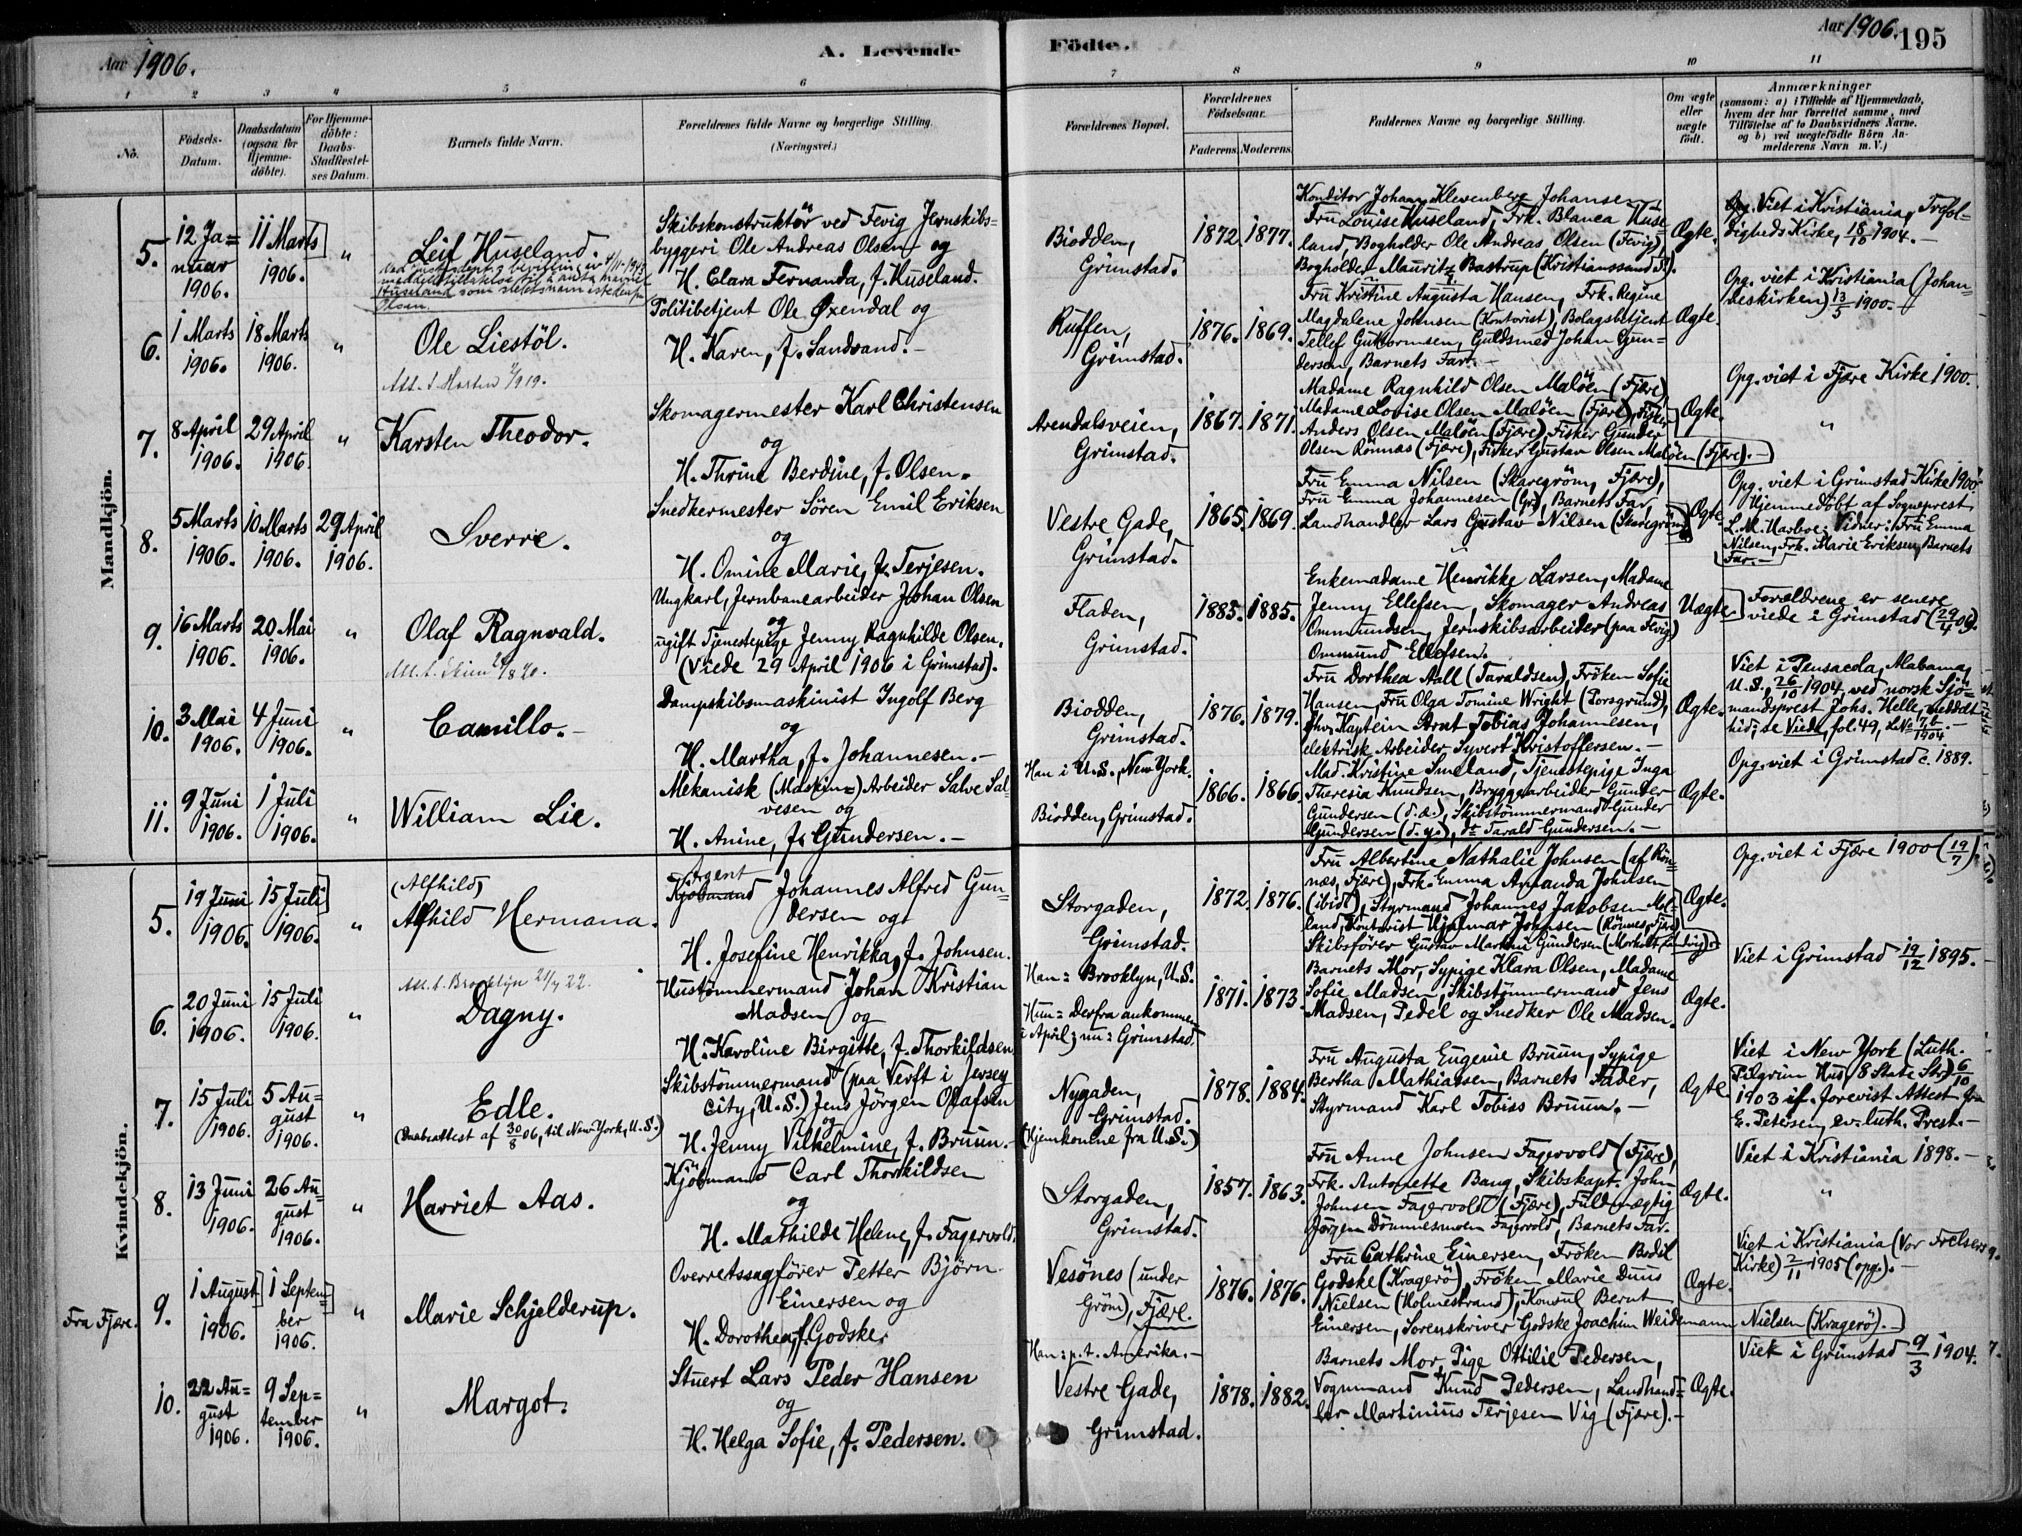 Aar 1906.
A. Levende
Födte.
Aar 1906.
195
1 2 3 4 5 6 7 8 9 10 11
No.
Födsels-Datum.
Daabsdatum (ogsaa for Hjemmedöbte).
For Hjemmedöbte: Daabs-Stadfæstelses Datum.
Barnets fulde Navn.
Forældrenes fulde Navne og borgerlige Stilling.
(Næringsvei.)
Forældrenes Bopæl.
Forældrenes Födselsaar.
Faderens. Moderens.
Faddernes Navne og borgerlige Stilling.
Om ægte eller uægte födt.
Anmærkninger
(saasom: a) i Tilfælde af Hjemmedaab,
hvem der har forrettet samme, med
Tilföielse af to Daabsvidners Navne.
og b) ved uegtefödte Börn An-
melderens Navn m. V.)
Mandkjön.
5.
12 Ja=
nuar
1906.
11 Marts
1906.
"
Leif Huseland.
Skibskonstruktör ved Fevig Jernskibs-
byggeri Ole Andreas Olsen og
H. Clara Fernanda, f. Huseland.
Biodden,
Grimstad.
1872. 1877.
Konditor Johann Klevenberg Johansen,
Fru Louise Huseland, Frk. Blanca Huse
land, Bogholder Ole Andreas Olsen (Fevig),
Bogholder Mauritz Bastrup (Kristianssand S).
Ægte.
Viet i Kristiania, Trefol-
digheds Kirke, 15/10 1904.-
6.
1 Marts
1906.
18 Marts
1906.
"
Ole Liestöl.
Politibetjent Ole Öxendal og
H. Karen, f. Sandsand.-
Ruffen,
Grimstad.
1876. 1869.
Fru Kristine Augusta Hansen, Frk. Regine
Magdalene Johnsen (Kontorist), Bolagsbetjent
Tellef Guttormsen, Guldsmed Johan Gun-
dersen, Barnets Far.-
Ægte.
Opg. viet i Kristiania (Johan-
neskirken) 13/5 1900.-
7.
8 April
1906.
29 April
1906.
"
Karsten Theodor.
Skomagermester Karl Christensen
og
H. Thrine Berdine, f. Olsen.
Arendalsveien,
Grimstad.
1867. 1871.
Madame Ragnhild Olsen Malöen (Fjære)
Madame Lovise Olsen Malöen (Fjære), Fisker
Anders Olsen Malöen (Fjære), Fisker Gunder
Olsen Rönnæs (Fjære), Fisker Gustav Olsen Malöen (Fjære).-
Ægte.
Opg. viet i Fjære Kirke 1900.
"
8.
5 Marts
1906.
10 Marts
1906.
29 April
1906.
Sverre.
Snedkermester Sören Emil Eriksen
og
H. Omine Marie, f. Terjesen.
Vestre Gade,
Grimstad.
1865. 1869.
Fru Emma Nilsen (Skaregröm, Fjære),
Fru Emma Johannesen (Gr), Barnets Far,
Landhandler Lars Gustav Nilsen (Skaregröm)
Ægte.
Opg. viet i Grimstad Kirke 1900.
Hjemmedöbt af Sogneprest
L. M. Harboe; Vidner: Fru Emma
Nilsen, Frk. Marie Eriksen, Barnets
Far.-
9.
16 Marts
1906.
20 Mai
1906.
"
Olaf Ragnvald.
Ungkarl, Jernbanearbeider Johan Olsen
og
ugift Tjenestepige Jenny Ragnhilde Olsen.
(Viede 29 April 1906 i Grimstad).
Fladen,
Grimstad.
1885. 1885.
Enkemadame Henrikke Larsen, Madame
Jenny Ellefsen, Skomager Andreas
Ommundsen, Jernskibsarbeider (paa Fevig)
Ommund Ellefsen.
Uægte
Forældrene er senere
viede i Grimstad (29/4 06).
10.
3 Mai
1906.
4 Juni
1906.
"
Camillo.-
Dampskibsmaskinist Ingolf Berg
og
H. Martha, f. Johannesen.-
Biodden,
Grimstad.
1876. 1879.
Fru Dorthea Aall (Taraldsen), Fröken Sofie
Hansen, Fru Olga Tomine Wright (Porsgrund),
fhv. Kaptein Arnt Tobias Johannesen,
elektrisk Arbeider Syvert Kristoffersen.-
Ægte.
Viet i Pensacola, Alabama,
U.S., 26/10 1904, ved norsk Sjö-
mandsprest Johs. Helle, meddelt
hid; se Viede, fol. 49,
11.
9 Juni
1906.
1 Juli
1906.
"
William Lie.
Mekanisk (Maskin=) Arbeider Salve Sal-
vesen og
H. Anine, f. Gundersen.-
Han i U.S., New York.
Biodden, Grimstad.
1866. 1866.
Mad. Kristine Smeland, Tjenestepige Inga
Theresia Knudsen, Bryggearbeider Gunder
Gundersen (d.æ.), Skibstömmermand Gunder
Gundersen (d.y.), do Tarald Gundersen.-
Ægte.
Opg. viet i Grimstad c. 1889.
Kvindekjön.
5.
19 Juni
1906.
15 Juli
1906.
"
(Alfhild)
Alfhild Hermana.
Agent
Kjöbmand Johannes Alfred Gun-
dersen og
H. Josefine Henrikka, f. Johnsen.
Storgaden,
Grimstad.
1872. 1876.
Fru Albertine Nathalie Johnsen (af Rön-
næs, Fjære), Frk. Emma Amanda Johnsen
(ibid), Styrmand Johannes Jakobsen
land, Kontorist Hjalmar Johnsen (Rönnes, Fjære)
Skibsförer Gustav Martin Gundersen
Ægte.
Opg. viet i Fjære 1900 (19/7).
6.
20 Juni
1906.
15 Juli
1906.
"
Att. t. Brooklyn 21/7 22.
Dagny.
Hustömmermand Johan Kristian
Madsen og
H. Karoline Birgitte, f. Thorkildsen
Han = Brooklyn, U.S.
Hun = Derfra ankommen
i April; nu: Grimstad.
1871. 1873.
Barnets Mor, Sypige Klara Olsen, Madame
Sofie Madsen, Skibstömmermand Jens
Madsen, Pedel og Snedker Ole Madsen.
Ægte.
Viet i Grimstad 19/12 1895.-
7.
15 Juli
1906.
5 Au=
gust
1906.
"
Edle.
(Daabsattest af 30/8 06, til New York, U.S.)
Skibstömmermand (paa Verft i Jersey
City, U.S.) Jens Jörgen Olafsen
og
H. Jenny Vilhelmine, f. Bruun.-
Nygaden,
Grimstad.
(Hjemkomne fra U.S.)
1878. 1884.
Fru Augusta Eugenie Bruun, Sypige
Bertha Mathiassen, Barnets Fader,
Styrmand Karl Tobias Bruun.-
Ægte.
Viet i New York (Luth.
Pilgrim Hus, 8 State Str) 6/10
1903 if. forevist Attest fra
E. Petersen, ev.-luth. Prest.-
8.
13 Juni
1906.
26 Au=
gust
1906.
"
Harriet Aas.
Kjöbmand Carl Thorkildsen
og
H. Mathilde Helene, f. Fagervold.
Storgaden,
Grimstad.
1857. 1863.
Fru Anne Johnsen Fagervold (Fjære),
Frk. Antonette Bang, Skibskapt. John
Johnsen Fagervold (Fjære), Fuldmægtig
Jörgen Dömmesmoen Fagervold, Barnets Far.
Ægte.
Viet i Kristiania 1898.-
"
Fra Fjære.
9.
1 August
1906.
1 Septem=
ber
1906.
"
Marie Schjelderup.
Overretssagförer Petter Björn
Einersen og
H. Dorothea, f. Godske
Vesönes (under
Gröm), Fjære.
1876. 1876.
Fru Cathrine Einersen, Fröken Bodil
Godske (Kragerö), Fröken Marie Duus
Nielsen (Holmestrand), Konsul Bernt
Einersen, Sorenskriver Godske Joachim Weidemann Nielsen (Kragerö).-
Ægte.
Viet i Kristiania (Vor Frelsers
Kirke) 2/11 1905 (opg.).-
10.
22 Au=
gust
1906.
9 Sep=
tember
1906.
"
Margot.
Stuert Lars Peder Hansen
og
H. Helga Sofie, f. Pedersen.
Han: p.t. Amerika.-
Vestre Gade,
Grimstad.
1878. 1882.
Barnets Mor, Pige Ottilie Pedersen,
Vognmand Knud Pedersen, Landhand=
ler Martinius Terjesen Vig (Fjære).-
Ægte.
Viet i Grimstad 9/3 1904.